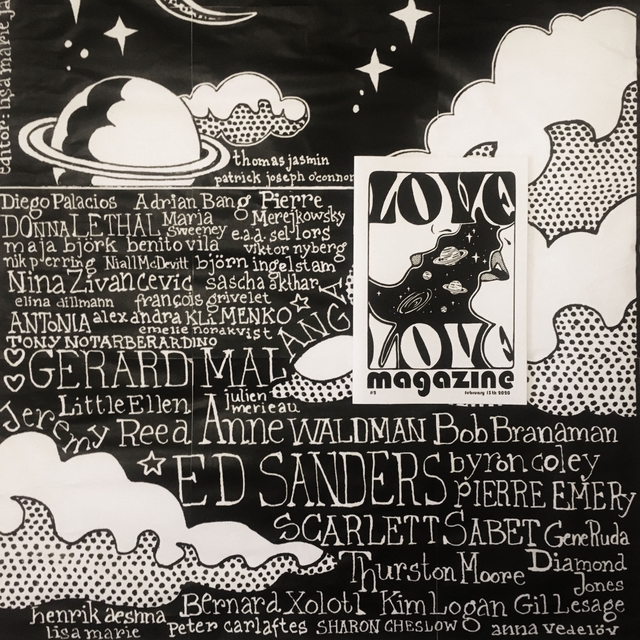 editor: lisa marie ja
thomas jasmin
patrick joseph o'connor
Diego Palacios Adrian Bang Pierre
Merejkowsky
DONNA LETHAL Maria
Sweeney e.a.d. sellors
maja björk benito vila viktor nyberg
nik perring Niall McDevitt björn ingelstam
Nina Zivancevic sascha akhtar
elina dillmann françois grivelet
ANTONIA alexandra KLIMENKO
emelie nordkvist
TONY NOTARBERARDINO
ANGA
GERARD MAL
LittleEllen julien
merieau
Jeremy Reed Anne WALDMAN Bob Branaman
ED SANDERS byron coley
PIERRE EMERY
SCARLETT SABET Gene Ruda
Thurston Moore Diamond
Jones
Bernard Xolotl Kim Logan Gil Lesage
henrik aeshna
lisa marie peter carlaftes SHARON CHESLOW anna vedelöv
LOVE
LOVE
magazine
#2 february 15th 2020